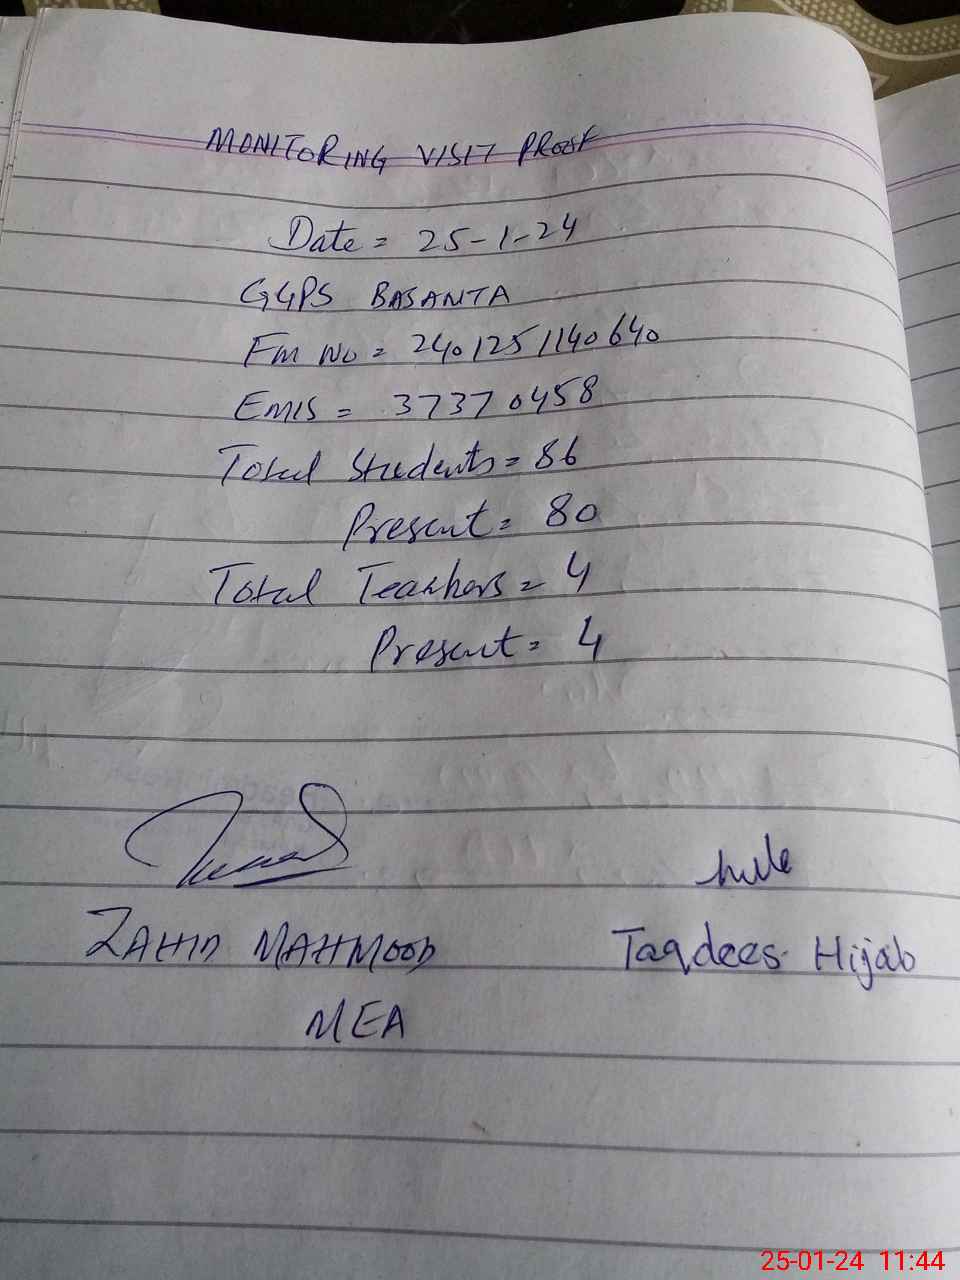 MONITORING VISIT PROOF
Date = 25-1-24
GGPS BASANTA
Fm No = 2401251140640
EMIS = 37370458
Total Students = 86
Present = 80
Total Teachers = 4
Present = 4
ZAHID MAHMOOD
Taqdees Hijab
MEA
25-01-24 11:44